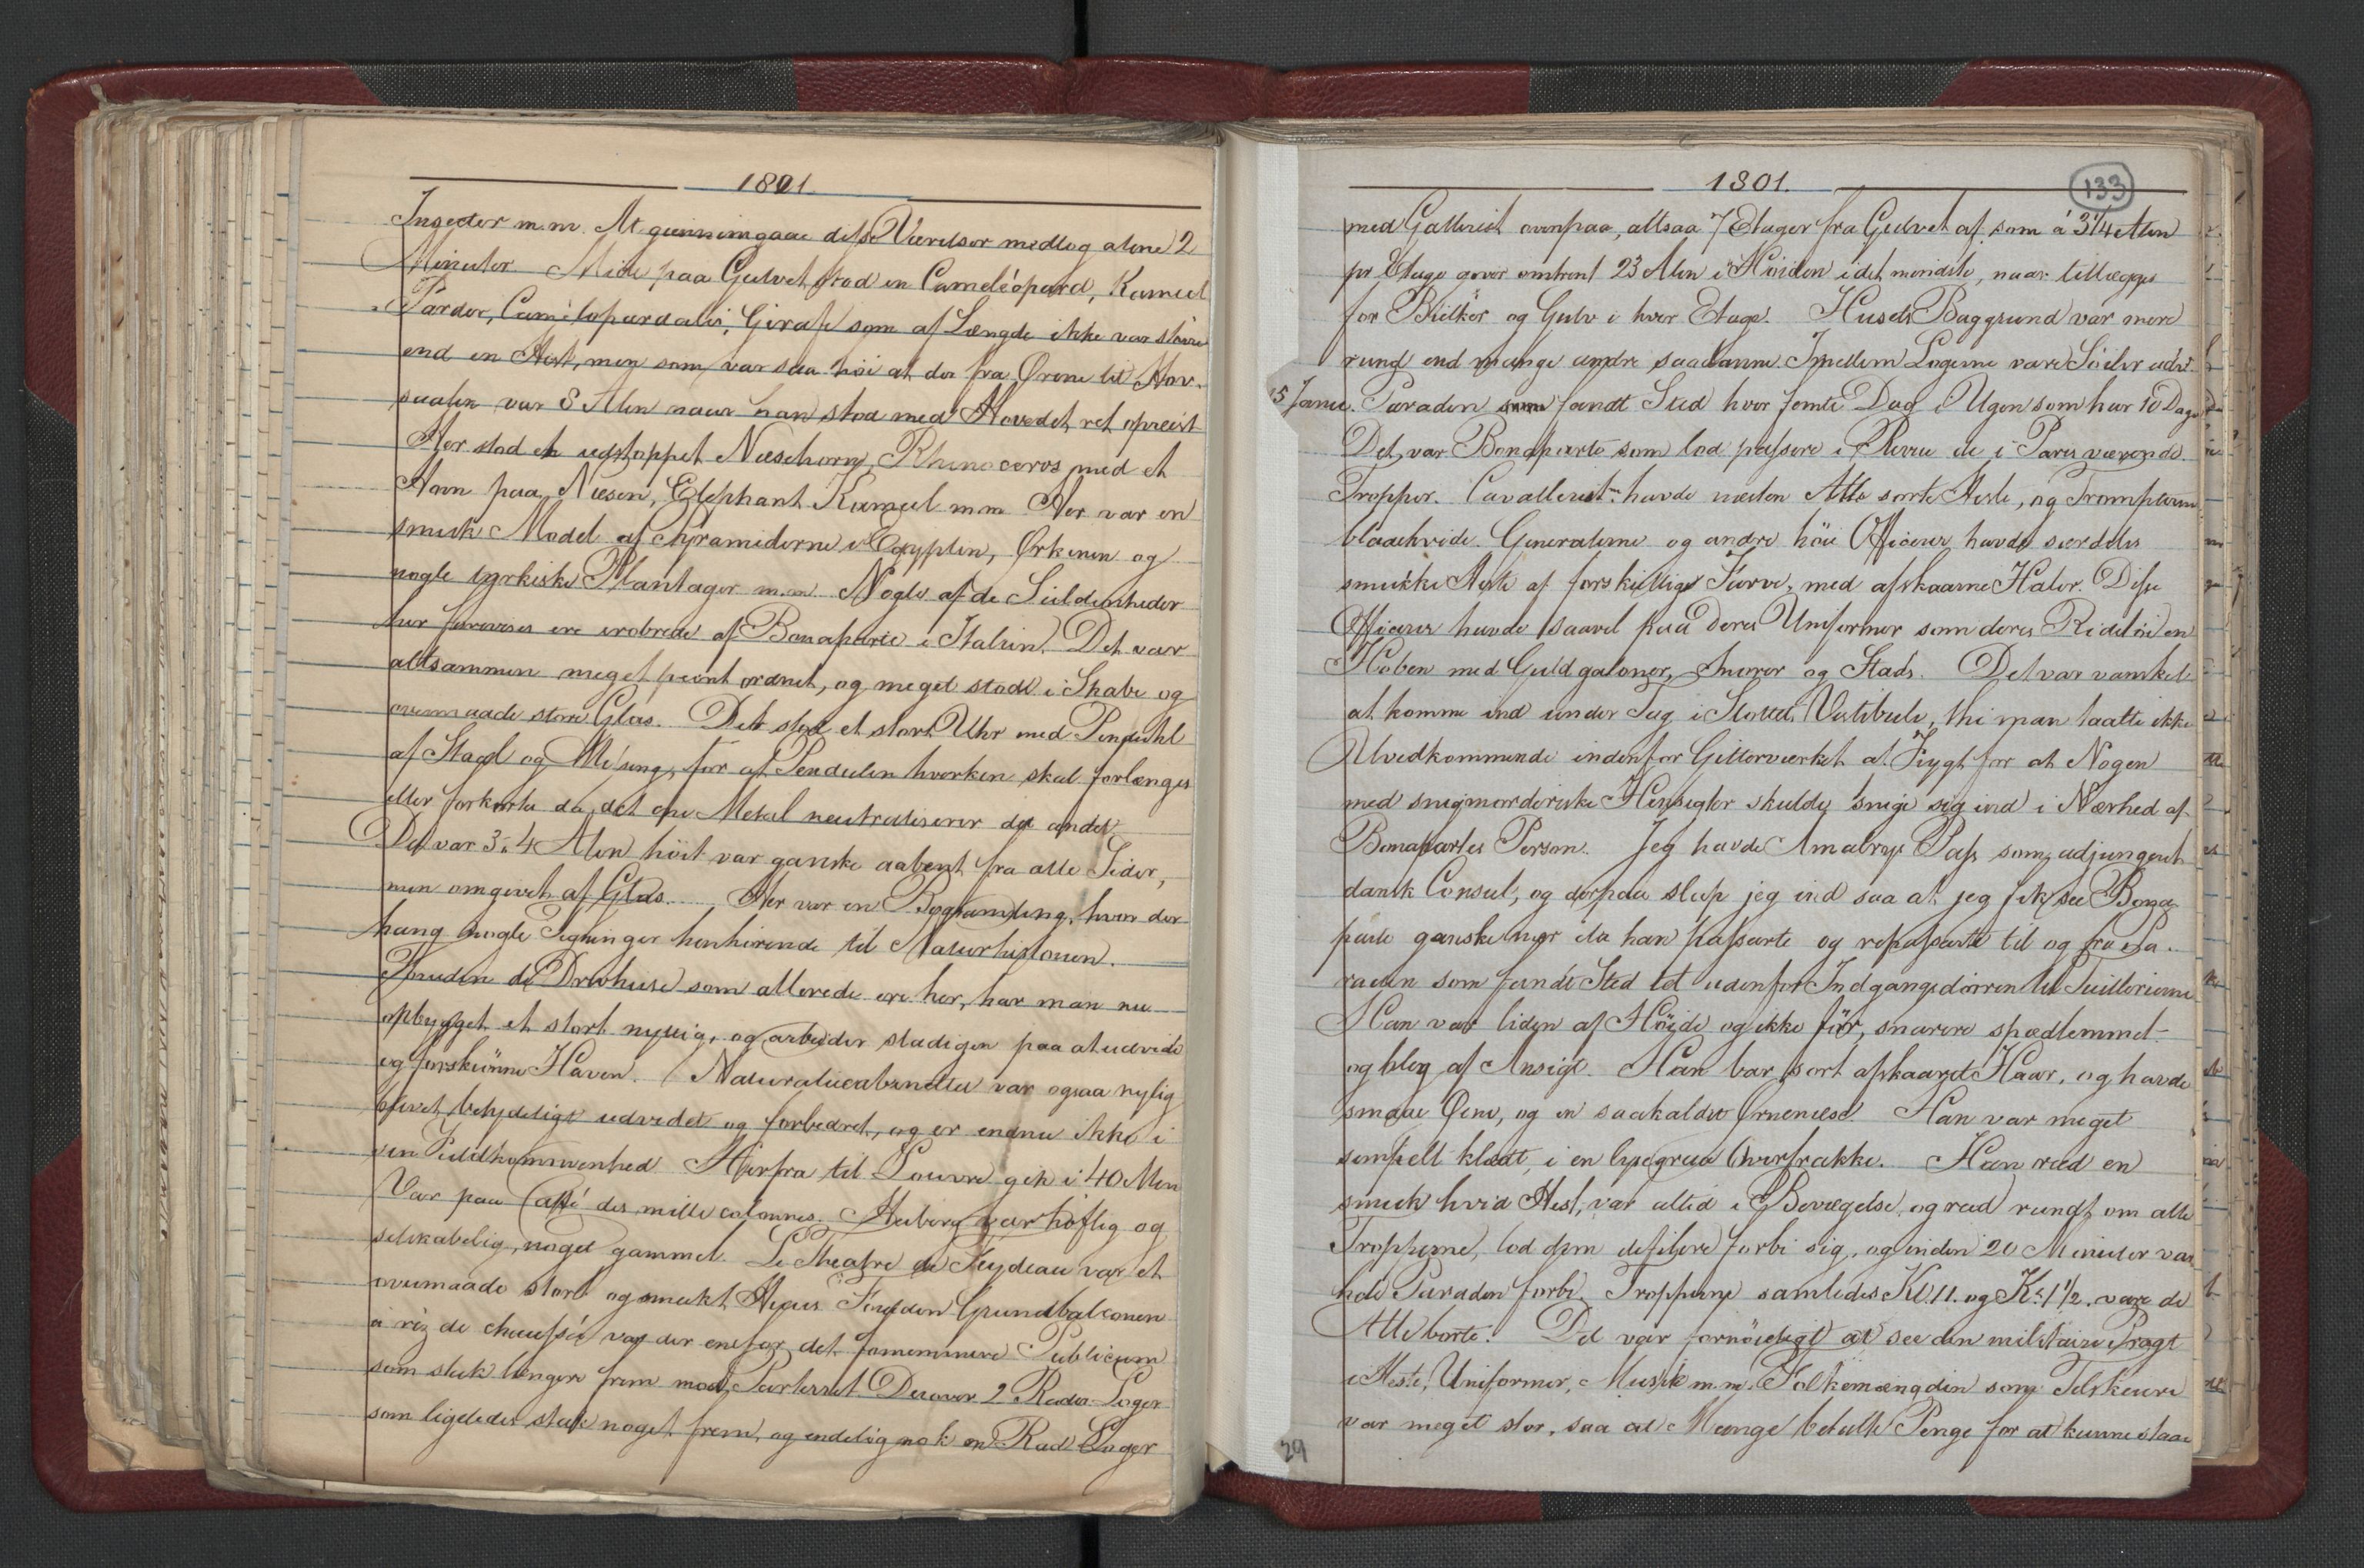 1801.
Insecter m.m. At giennemgaae disse Værelser medtog alene 2
Minuter Midt paa Gulvet stod en Cameléopard, Kameel
Parder, Camelopardalis, Giraf som af Længde ikke var större
end en Hest, men som var saa höi at der fra Ørene til Hov-
saalen var 8 Alen naar han stod med Hovedet ret opreist
Her stod et udstoppet Næsehorn, Rhinoceros med et
Horn paa Næsen, Elephant Kameel m m Her var en
smuk Model af Pyramiderne i Egypten, Ørkenen og
nogle tyrkiske Plantager m.m. Nogle af de Sieldenheder
her forevises ere erobrede af Bonaparte i Italien. Det var
altsammen meget peent ordnet, og meget stod i Skabe og
overmaade store Glas. Der stod et stort Uhr med Pendul
af Staal og Messing, for at Pendulen hverken skal forlænges
eller forkortes da det ene Metal neutraliserer det andet
Det var 3 à 4 Alen höit var ganske aabent fra alle Sider,
men omgivet af Glas. Her var en Bogsamling, hvor der
hang nogle Tegninger henhörende til Naturhistorien.
Foruden de Drivhuse som allerede ere her, har man nu
opbygget et stort nyttig, og arbeider stadigen paa at udvide
og forskiönne Haven. Naturaliecabinettet var ogsaa nylig
blevet betydeligt udvidet og forbedret, og er endnu ikke i
sin Fuldkommenhed Herfra til Louvre gik i 40 Min
Var paa Caffé des mille colonnes. Huberg var höflig og
selskabelig, noget gammel. Le Theatre de Feydeau var et
overmaade stort og smukt Huus Foruden Grundbalconen
à réz de chaussée var der en for det fornemmere Publicum
som stak længere frem mod Parterret Derover 2 Rader Loger
som ligeledes stak noget frem, og endelig nok en Rad Loger
1801.
133
med Gallerist ovenpaa, altsaa 7 Etager fra Gulvet af som à 3 1/4 Alen
pr Etage gjör omtrent 23 Alen i Höiden i det mindste, naar tillægges
for Bielker og Gulv i hver Etage. Husets Baggrund var mere
rund end mange andre saadanne. Imellem Logerne vare Söiler udv.
5 Janu. Paraden fandt Sted hver femte Dag i Ugen som har 10 Dage
Det var Bonaparte som lod passere i Revue de i Paris værende
Tropper. Cavalleriet havde næsten Alle sorte Heste, og Trompeterne
blaahvide. Generalerne og andre höie Officerer havde særdeles
smukke Heste af forskiellige Farve, med afskaarne Haler. Disse
Officerer havde saavel paa deres Uniformer som deres Ridetöi en
Hoben med Guldgaloner, Snorer og Stads. Det var vanskel
at komme ind under Tag i Slottets Vestibule, thi man taalte ikke
Uvedkommende indenfor Gitterværket af Frygt for at Nogen
med snigmorderiske Hensigter skulde snige sig ind i Nærhed af
Bonapartes Person. Jeg havde Amalrys Pass som adjungeret
dansk Consul, og derpaa slap jeg ind saa at jeg fik see Bona
parte ganske nær da han passerte og repasserte til og fra Pa-
raden som fandt Sted tet udenfor Indgangsdörren til Tuillerierne
Han var liden af Höide og ikke för, snarere spædlemmet
og bleg af Ansigt. Han bar sort afskaaret Haar, og havde
smaae Øine, og en saakaldet Ørnenæse. Han var meget
simpelt klædt, i en lysegraa Overfrakke. Han red en
smuk hvid Hest, var altid i Bevægelse, og red rundt om alle
Tropperne, lod dem defilere forbi sig, og inden 20 Minuter var
hele Paraden forbi. Tropperne samledes Kl. 11. og Kl. 1 1/2. vare de
Alle borte. Det var fornöieligt at see den militaire Pragt
i Heste, Uniformer, Musik m.m. Folkemængden som Tilskuere
var meget stor, saa at Mange betalte Penge for at kunne staae
29